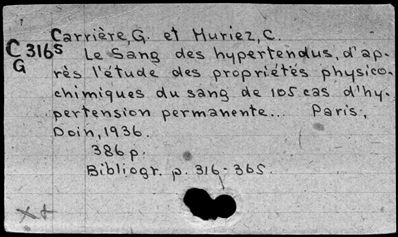 Carrière, G. et Muriez, C.
C316s
G
Le Sang des hypertendus, d'ap-
rès l'étude des propriétés physico-
chimiques du sang de 105 cas d'hy-
pertension permanente... Paris,
Doin, 1936.
386 p.
Bibliogr. p. 316-365.